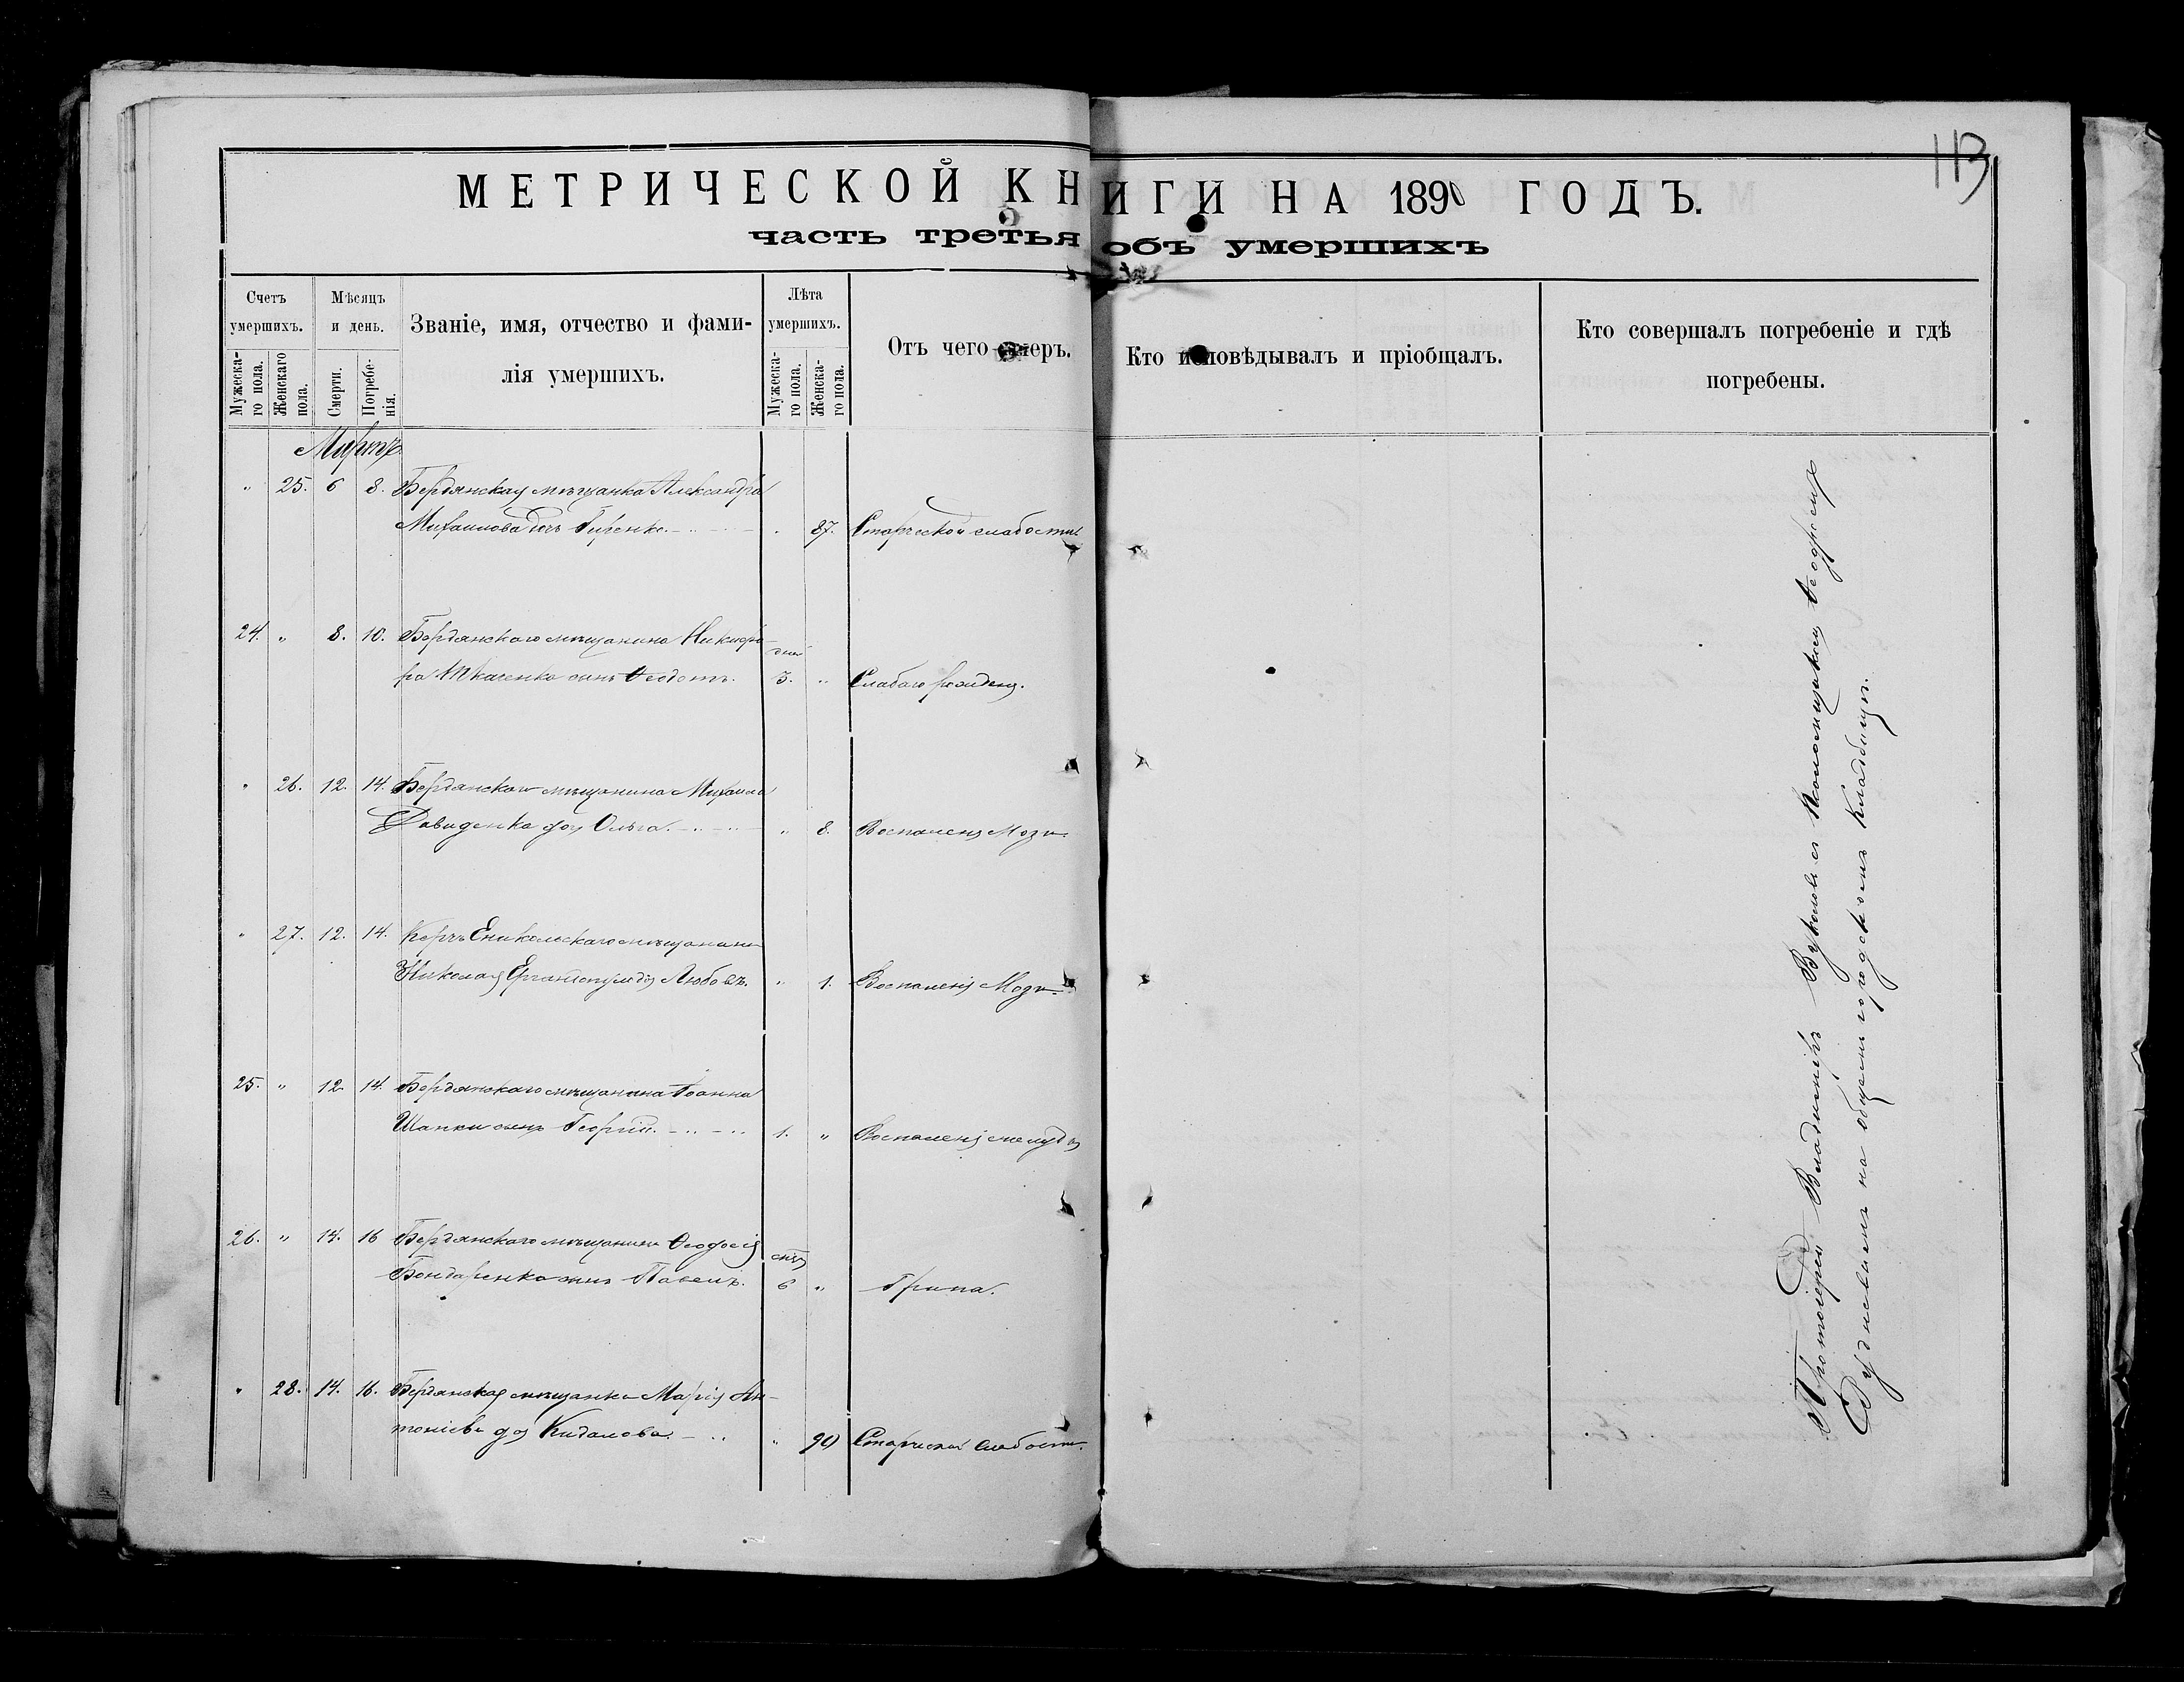 113
МЕТРИЧЕСКОЙ КНИГИ НА 1890 ГОДЪ.
часть третья объ умершихъ
Счетъ умершихъ.
Мужеска-го пола.
Женскаго пола.
Мѣсяцъ и день.
Смерти.
Погребе-нія.
Званіе, имя, отчество и фами-
лія умершихъ.
Лѣта умершихъ.
Мужеска-го пола.
Женска-го пола.
Отъ чего умеръ.
Кто исповѣдывалъ и пріобщалъ.
Кто совершалъ погребеніе и гдѣ
погребены.
Мартъ
" 25. 6 8. Бердянская мѣщанка Александра
Михаилова дочь . 87. Старческой слабости
24. " 8. 10. Бердянскаго мѣщанина Никифо- дней
ра Ткаченко сынъ Ѳеодотъ. 3. " Слабаго рожденія.
" 26. 12. 14. Бердянскаго мѣщанина Михаила
Давиденко доч Ольга. " 8. Воспаленія Мозга.
" 27. 12. 14. Керчь Еникольскаго мѣщанина
Николая доч Любовь. " 1. Воспаленія Мозга.
25. " 12. 14. Бердянскаго мѣщанина Іоанна
Шапки сынъ Георгій. 1. " Воспаленія желудка
26. " 14. 16 Бердянскаго мѣщанина Ѳеодосія мѣс
Бондаренко сынъ Павелъ. 6 " Грипа.
" 28. 14. 16. Бердянская мѣщанка Марія Ан-
тоніева доч Кидалова. " 90 Старческой слабости.
Протоіерей Владимиръ съ Псаломщикомъ
на общемъ городскомъ кладбищѣ.